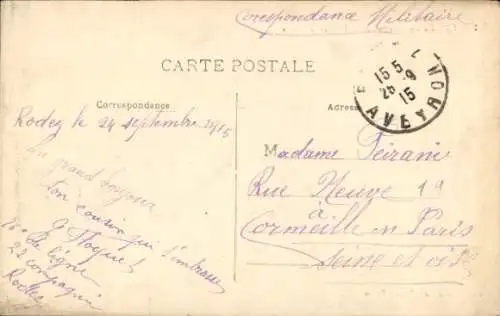 Correspondance Militaire
CARTE POSTALE
Correspondance
Adresse
15 5
26 -9
15
AVEYRON
Rodez le 24 septembre 1915
Un grand bonjour
Ton cousin qui t'embrasse
de ligne
22 compagnie
Rodez
Madame Peirani
Rue Neuve 19
à
Cormeille en Paris
Seine et Oise